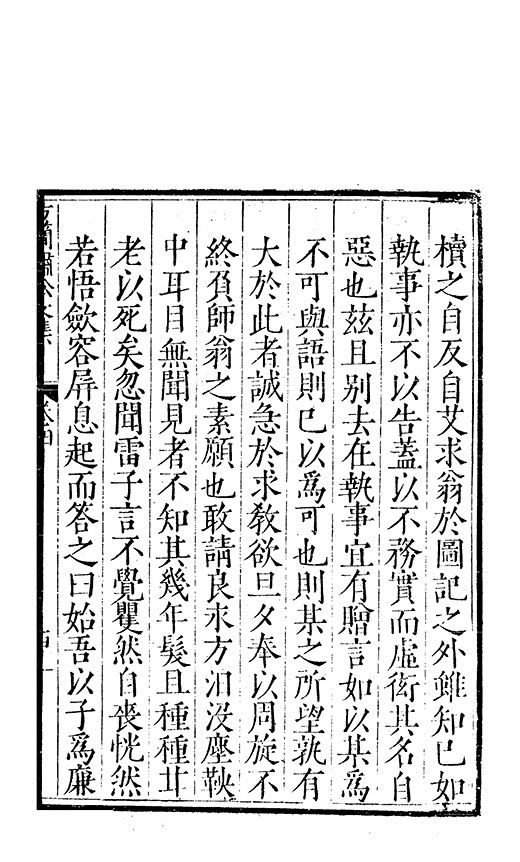 櫝之自反自艾求翁於圖記之外雖知己如
執事亦不以告蓋以不務實而虛衒其名自
惡也茲且别去在執事宜有贈言如以某爲
不可與語則已以爲可也則某之所望孰有
大於此者誠急於求敎欲旦夕奉以周旋不
終負師翁之素願也敢請良永方汨没塵鞅
中耳目無聞見者不知其幾年髮且種種廿
老以死矣忽聞雷子言不覺瞿然自喪恍然
若悟斂容屏息起而答之曰始吾以子爲廉
方簡肅公文集
卷四